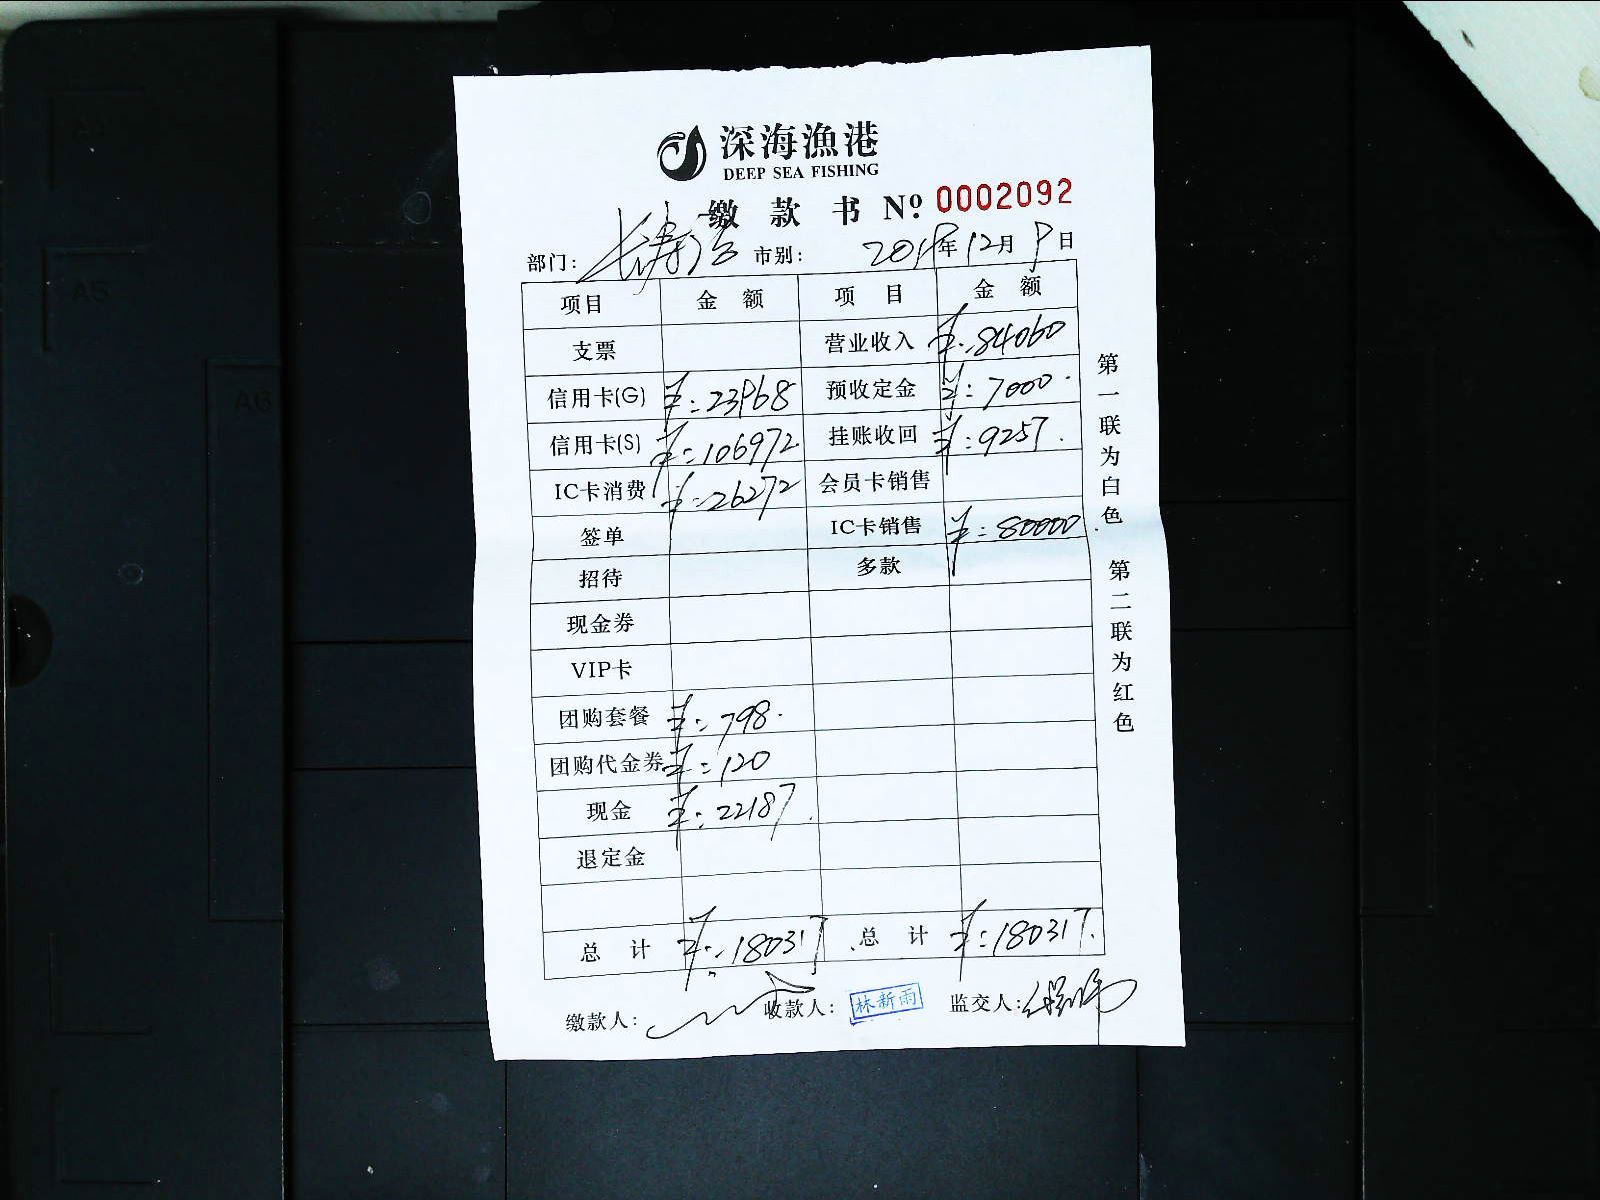 深海渔港
DEEP SEA FISHING
缴款书 Nº 0002092
部门: 长寿 市别: 2019年12月9日
项目 金额 项目 金额
支票 营业收入 ¥:84060
信用卡(G) ¥:23968 预收定金 ¥:7000
信用卡(S) ¥:106972 挂账收回 ¥:9257
IC卡消费 ¥:26272 会员卡销售
签单 IC卡销售 ¥:80000
招待 多款
现金券
VIP卡
团购套餐 ¥:798
团购代金券 ¥:120
现金 ¥:22187
退定金
总计 ¥:180317 总计 ¥:180317
缴款人: 收款人: 林新雨 监交人:
第一联为白色 第二联为红色
A5
A6